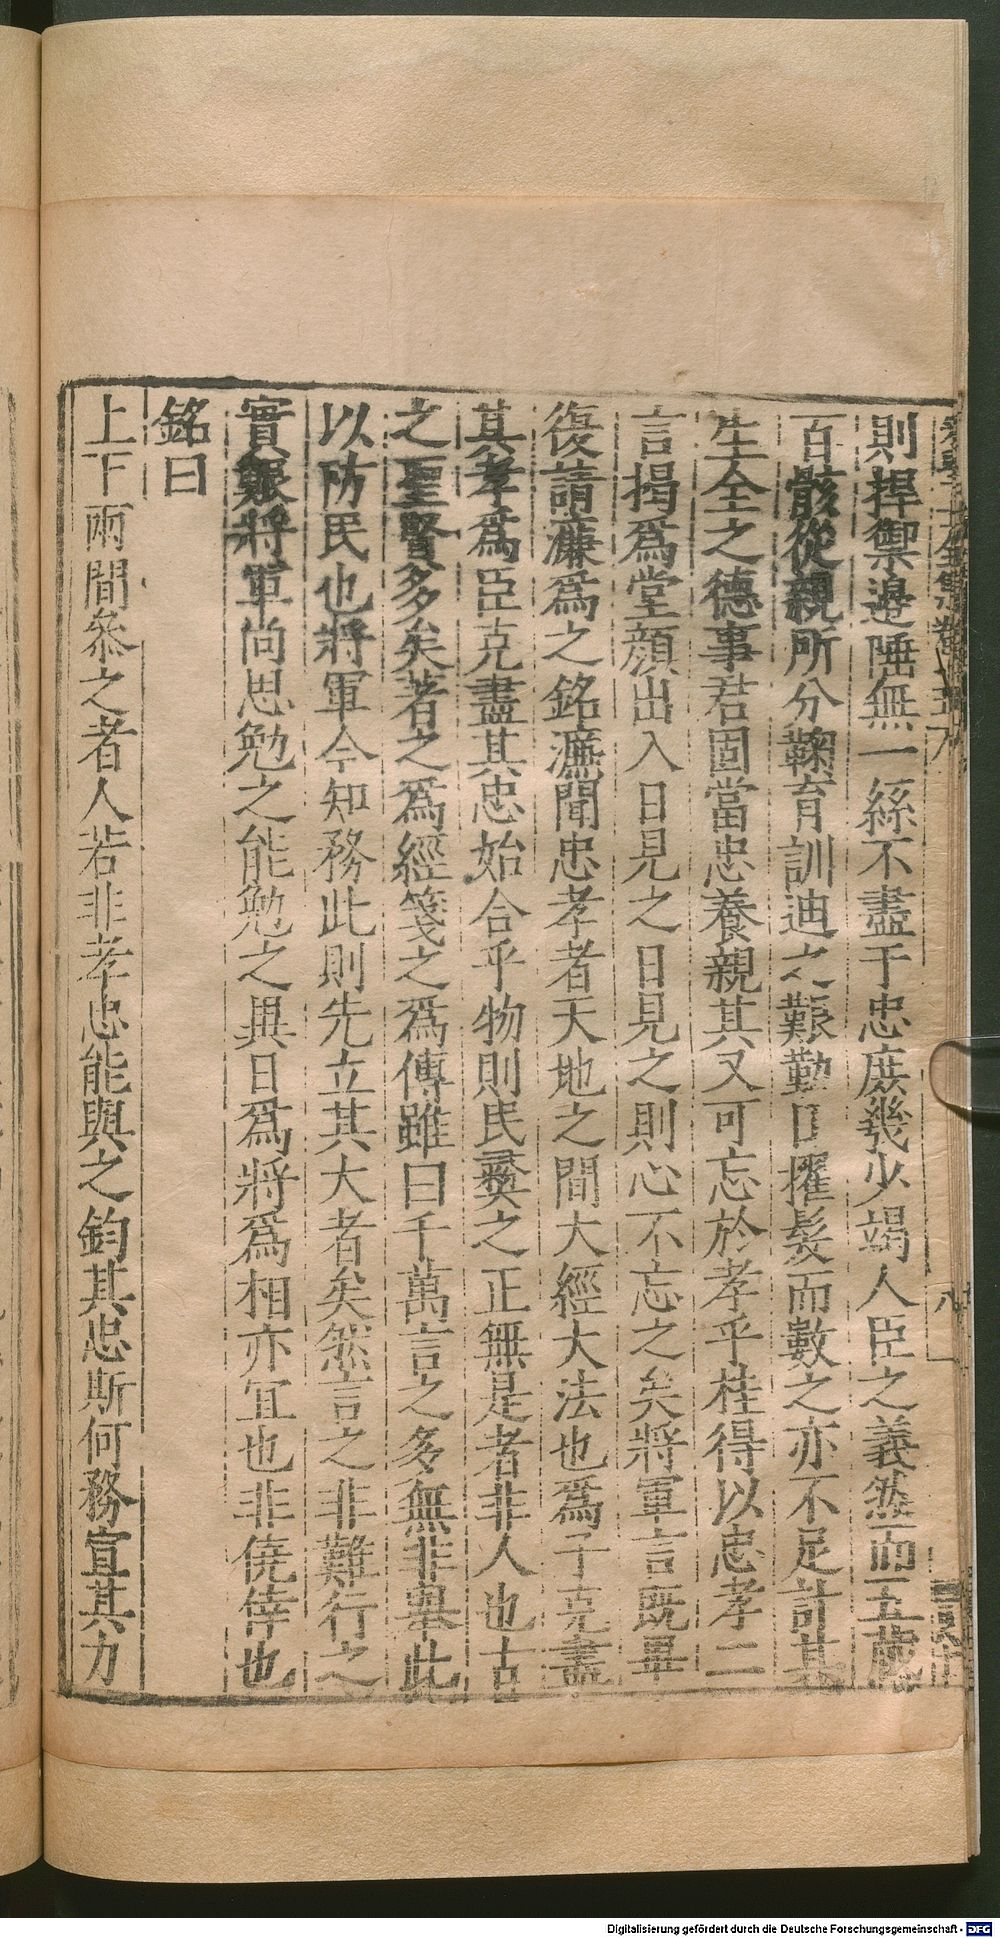 則捍禦邊陲無一絲不盡于忠庶幾少竭人臣之義然而五歲
百骸從親所分鞠育訓迪之艱勤日擢髮而數之亦不足計其
生全之德事君固當忠養親其又可忘於孝乎桂得以忠孝二
言揭爲堂顔出入日見之日見之則心不忘之矣將軍言既畢
復請濂爲之銘濂聞忠孝者天地之間大經大法也爲子克盡
其孝爲臣克盡其忠始合乎物則民彝之正無是者非人也古
之聖賢多矣著之爲經箋之爲傳雖曰千萬言之多無非舉此
以防民也將軍今知務此則先立其大者矣然言之非難行之
實艱將軍尚思勉之能勉之異日爲將爲相亦宜也非僥倖也
銘曰
上下兩間叅之者人若非孝忠能與之鈞其忠斯何務宣其力
Digitalisierung gefördert durch die Deutsche Forschungsgemeinschaft - DFG